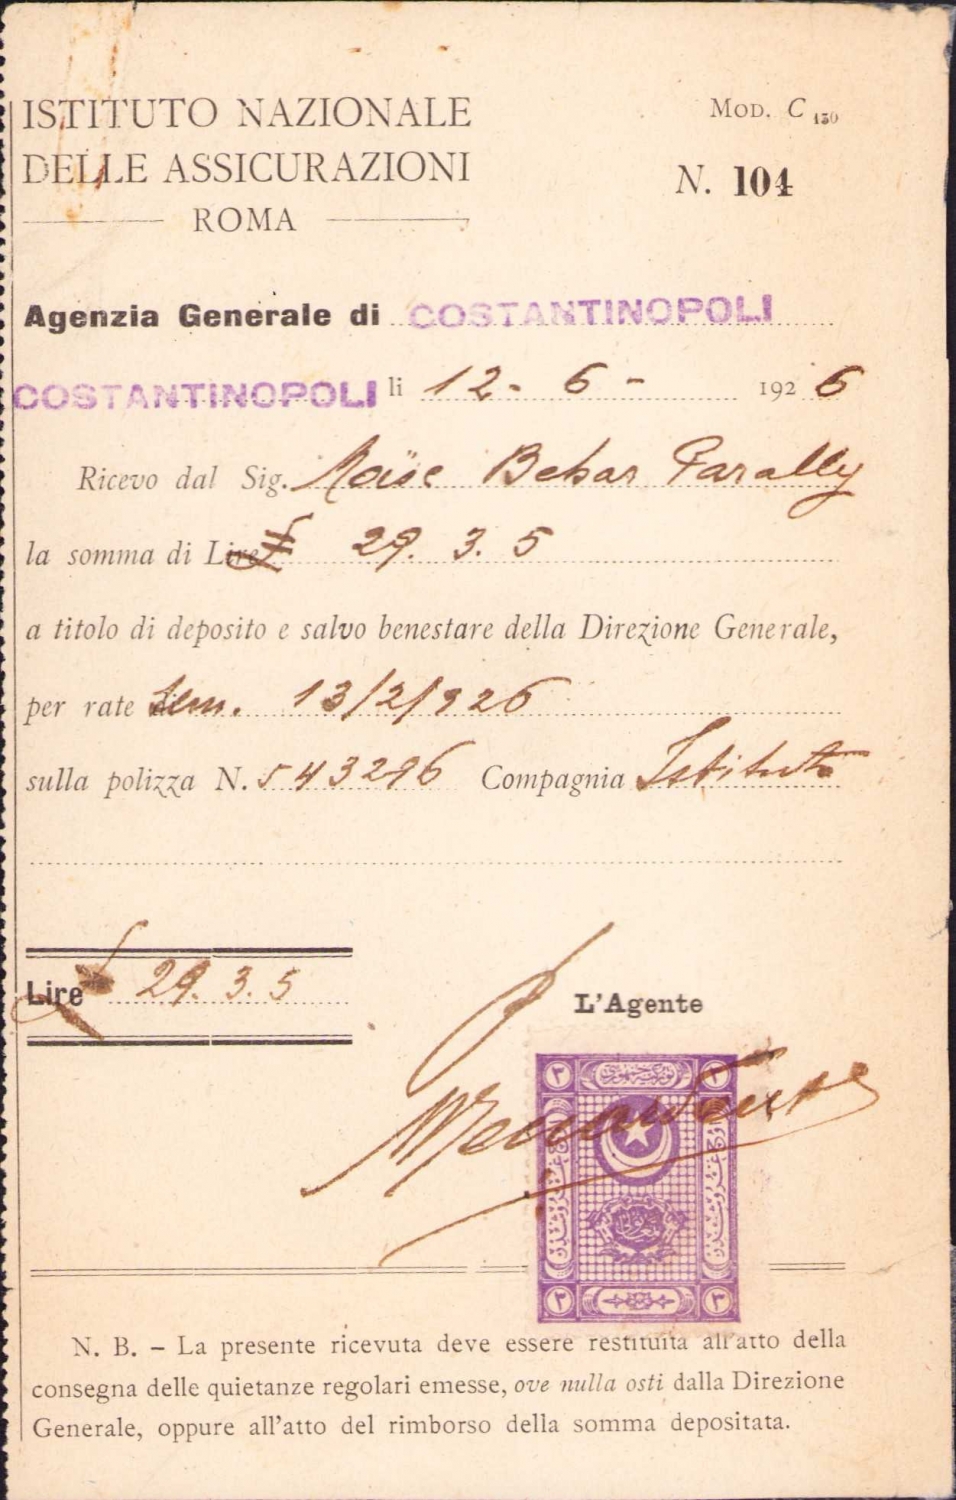 ISTITUTO NAZIONALE
DELLE ASSICURAZIONI
ROMA
MOD. C 150
N. 104
Agenzia Generale di COSTANTINOPOLI
COSTANTINOPOLI li 12-6- 1926
Ricevo dal Sig. Moïse Behar Farally
la somma di Lire £ 29.3.5
a titolo di deposito e salvo benestare della Direzione Generale,
per rate Sem. 13/2/926
sulla polizza N. 543296 Compagnia Istituto
Lire £ 29.3.5
L'Agente
٣ توركيه جمهوريتى ٣
٣ ٣
N. B. – La presente ricevuta deve essere restituita all'atto della
consegna delle quietanze regolari emesse, ove nulla osti dalla Direzione
Generale, oppure all'atto del rimborso della somma depositata.